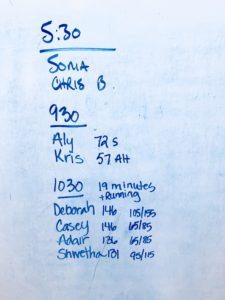 5:30
SONIA
CHRIS B.
930
Aly 72 S
Kris 57 AH
1030 19 minutes
+Running
Deborah 146 105/155
Casey 146 65/85
Adair 126 65/85
Shwetha 131 95/115